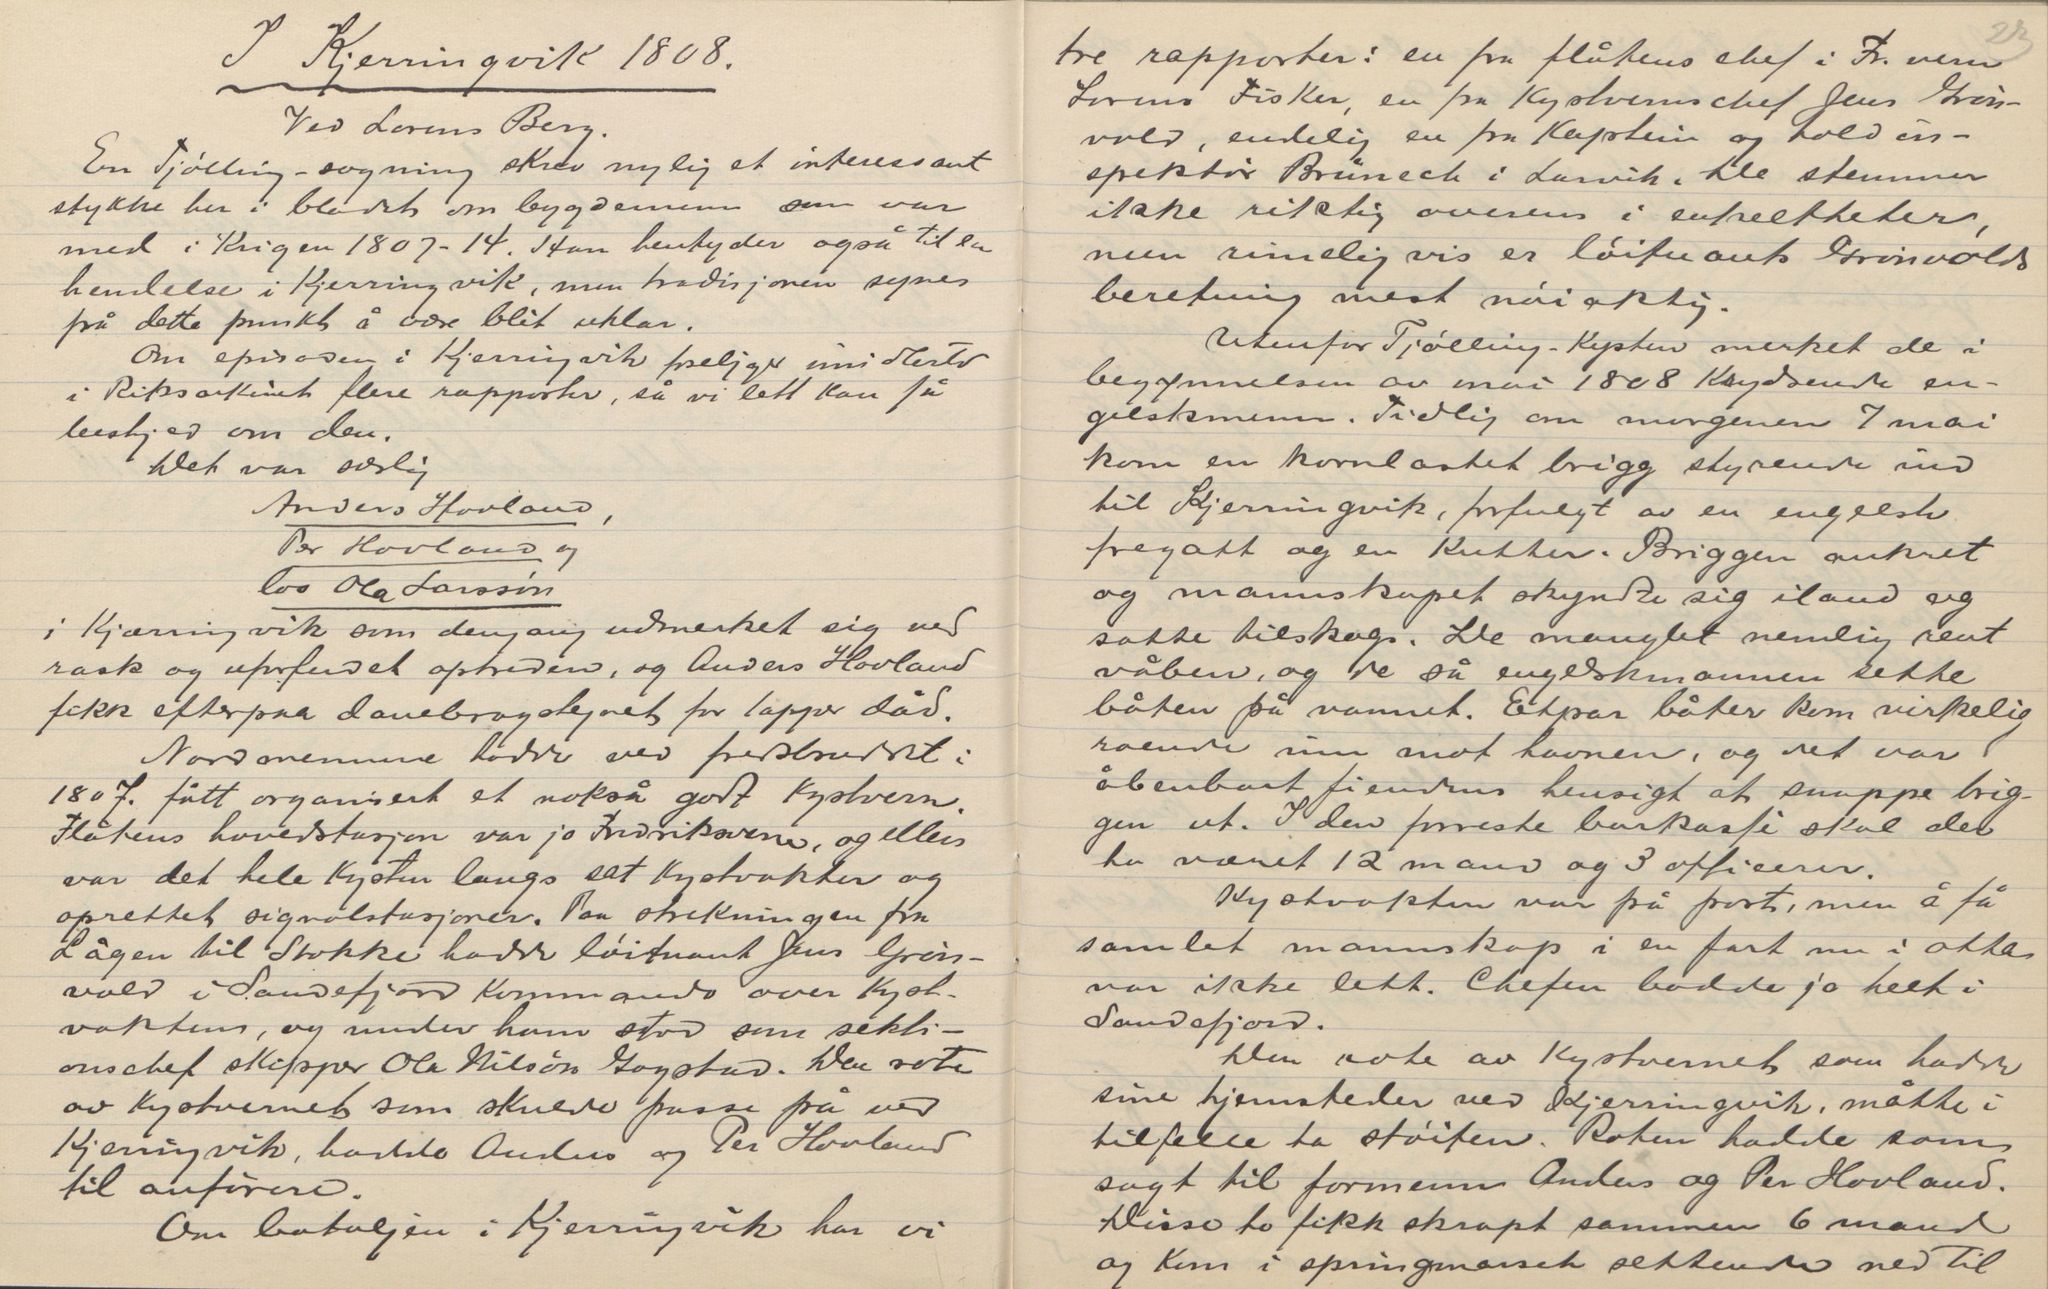 I Kjerringvik 1808.
Ved Lorens Berg.
En Tjølling-sogning skrev nylig et interessant
stykke her i bladet om bygdemenn som var
med i Krigen 1807-14. Han hentyder også til en
hendelse i Kjerringvik, men tradisjonen synes
på dette punkt å være blit uklar.
Om episoden i Kjerringvik foreligger imidlertid
i Riksarkivet flere rapporter, så vi lett kan få
beskjed om den.
Det var særlig
Anders Hovland,
Per Hovland og
los Ola Larssøn
i Kjærringvik som dengang udmerket sig ved
rask og uforfærdet optreden, og Anders Hovland
fikk efterpaa danebrogstegnet for tapper dåd.
Nordmennene hadde ved fredsbruddet i
1807. fått organisert et nokså godt Kystvern.
Flåtens hovedstasjon var jo Fredriksvern, og ellers
var det hele Kysten langs sat Kystvakter og
oprettet signalstasjoner. Paa strekningen fra
Lågen til Stokke hadde löitnant Jens Grön-
vold i Sandefjord Kommando over Kyst-
vakten, og under ham stod som sekti-
onschef skipper Ola Nilsön Gogstad. Den rote
av Kystvernet som skulde passe på ved
Kjerringvik, hadde Anders og Per Hovland
til anförere.
Om bataljen i Kjerringvik har vi
23
tre rapporter: en fra flåtens chef i Fr. vern
Lorens Fisker, en fra Kystvernschef Jens Grön-
vold, endelig en fra Kaptein og told in-
spektör Brünech i Larvik. De stemmer
ikke riktig overens i enkeltheter,
men rimelig vis er löitnant Grönvolds
beretning mest nöiaktig.
Utenfor Tjølling-Kysten merket de i
begynnelsen av mai 1808 Krydsende en-
gelskmenn. Tidlig om morgenen 7 mai
kom en kornlastet brigg styrende ind
til Kjerringvik, forfulgt av en engelsk
fregatt og en Kutter. Briggen ankret
og mannskapet skyndte sig iland og
satte tilskogs. De manglet nemlig rent
våben, og de så engelskmannen sette
båten på vannet. Et par båter kom virkelig
roende inn mot havnen, og det var
åbenbart fiendens hensigt at snappe brig-
gen ut. I den forreste barkasse skal der
ha været 12 mand og 3 officerer.
Kystvakten var på post, men å få
samlet mannskap i en fart nu i otta
var ikke lett. Chefen bodde jo helt i
Sandefjord.
Den rote av Kystvernet som hadde
sine hjemsteder ved Kjerringvik, måtte i
tilfelle ta støiten. Roten hadde som
sagt til formenn Anders og Per Hovland.
Disse to fikk skrapt sammen 6 mand
og Kom i springmarsch settende ned til